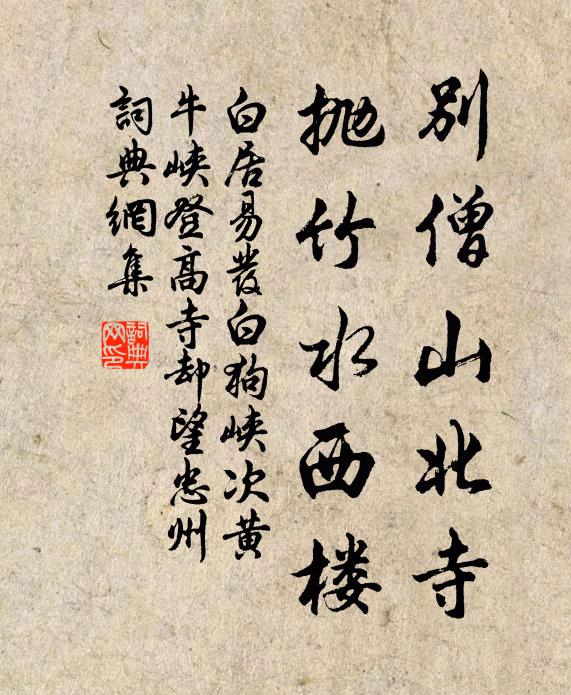 別僧山北寺
抛竹水西楼
白居易發白狗峽次黃
牛峽登高寺却望忠州
詞典網集
詞典网印